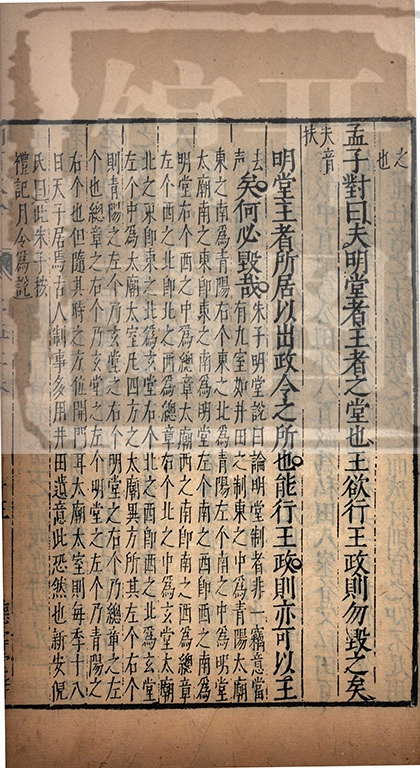 之
也
孟子對曰夫明堂者王者之堂也王欲行王政則勿毀之矣
夫音
扶
明堂王者所居以出政令之所也能行王政則亦可以王
去
聲
矣何必毀哉
朱子明堂說曰論明堂制者非一竊意當
有九室如井田之制東之中為青陽太廟
東之南為青陽右个東之北為青陽左个南之中為明堂
太廟南之東即東之南為明堂左个南之西即西之南為
明堂右个西之中為總章太廟西之南即南之西為總章
左个西之北即北之西為總章右个北之中為玄堂太廟
北之東即東之北為玄堂右个北之西即西之北為玄堂
左个中為太廟太室凡四方之太廟異方所其左个右个
則青陽之左个乃玄堂之右个明堂之右个乃總章之左
个也總章之右个乃玄堂之左个明堂之左个乃青陽之
右个也但隨其時之方位開門耳太廟太室則每季十八
日天子居焉古人制事多用井田遺意此恐然也新安倪
氏曰此朱子按
禮記月令為說